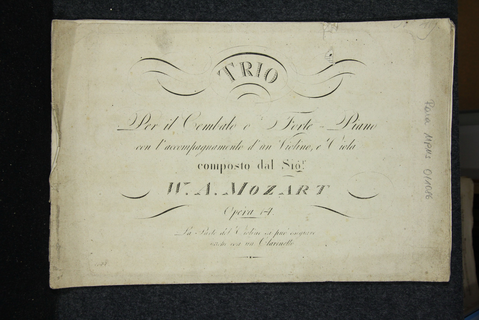 TRIO
Per il Cembalo o Forte-Piano
con l'accompagnamento d'un Violino, e Viola
composto dal Sigr.
W. A. MOZART
Opera 14.
La Parte del Violino si può eseguire
anche con un Clarinetto